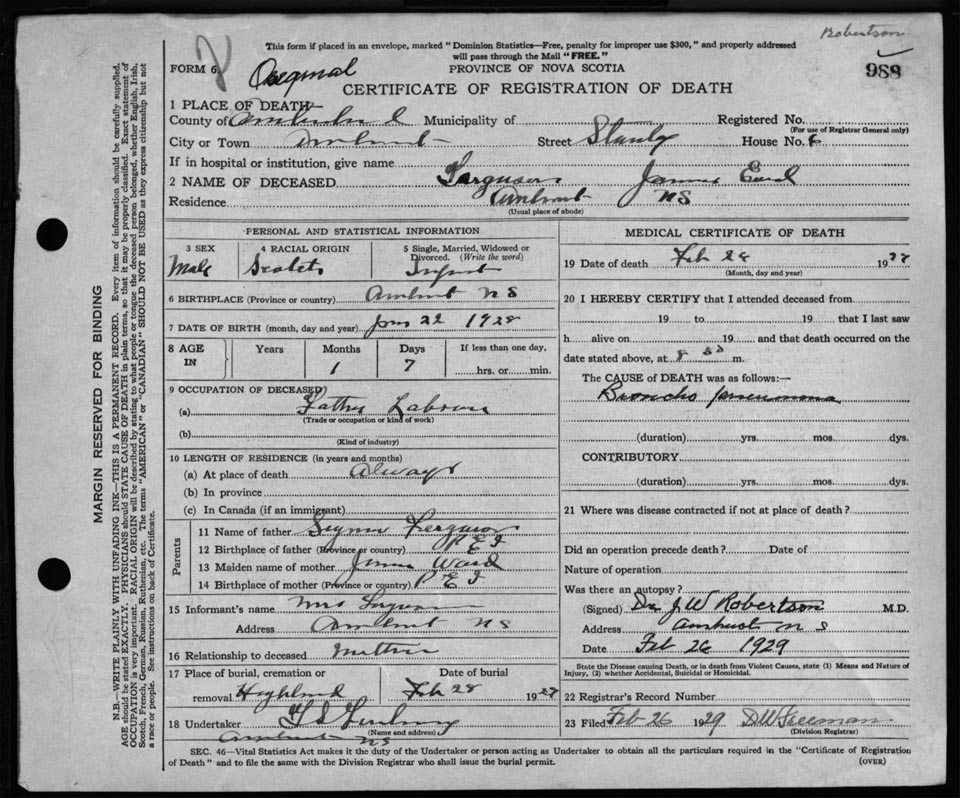 Robertson
2
This form if placed in an envelope, marked "Dominion Statistics—Free, penalty for improper use $300," and properly addressed
will pass through the Mail "FREE."
FORM 6.
Original
PROVINCE OF NOVA SCOTIA
988
CERTIFICATE OF REGISTRATION OF DEATH
1 PLACE OF DEATH—
County of Municipality of Registered No.
(For use of Registrar General only)
City or Town Amherst Street Stanly House No. 6
If in hospital or institution, give name
2 NAME OF DECEASED Ferguson James
Residence Amherst NS
(Usual place of abode)
PERSONAL AND STATISTICAL INFORMATION
3 SEX
Male
4 RACIAL ORIGIN
5 Single, Married, Widowed or
Divorced. (Write the word)
Infant
6 BIRTHPLACE (Province or country) Amherst NS
7 DATE OF BIRTH (month, day and year) Jan 22 1928
8 AGE
IN
Years
Months
1
Days
7
If less than one day,
hrs. or min.
9 OCCUPATION OF DECEASED
(a) Father Labourer
(Trade or occupation or kind of work)
(b)
(Kind of industry)
10 LENGTH OF RESIDENCE (in years and months)
(a) At place of death always
(b) In province
(c) In Canada (if an immigrant)
Parents
11 Name of father Ferguson
12 Birthplace of father (Province or country) P E I
13 Maiden name of mother Ward
14 Birthplace of mother (Province or country) P E I
15 Informant's name Mrs Ferguson
Address Amherst NS
16 Relationship to deceased Mother
17 Place of burial, cremation or
removal Highland
Date of burial
Feb 28 19
18 Undertaker
(Name and address)
Amherst NS
MEDICAL CERTIFICATE OF DEATH
19 Date of death Feb 28 19
(Month, day and year)
20 I HEREBY CERTIFY that I attended deceased from
19 to 19 that I last saw
h alive on 19 and that death occurred on the
date stated above, at 8 m.
The CAUSE of DEATH was as follows:—
Broncho pneumonia
(duration) yrs. mos. dys.
CONTRIBUTORY
(duration) yrs. mos. dys.
21 Where was disease contracted if not at place of death?
Did an operation precede death? Date of
Nature of operation
Was there an autopsy?
(Signed) Dr J W Robertson M.D.
Address Amherst N S
Date Feb 26 1929
State the Disease causing Death, or in death from Violent Causes, state (1) Means and Nature of
Injury, (2) whether Accidental, Suicidal or Homicidal.
22 Registrar's Record Number
23 Filed Feb 26 1929 D W Freeman
(Division Registrar)
SEC. 46—Vital Statistics Act makes it the duty of the Undertaker or person acting as Undertaker to obtain all the particulars required in the "Certificate of Registration
of Death" and to file the same with the Division Registrar who shall issue the burial permit.
(OVER)
MARGIN RESERVED FOR BINDING
N.B.—WRITE PLAINLY WITH UNFADING INK—THIS IS A PERMANENT RECORD. Every item of information should be carefully supplied.
AGE should be stated EXACTLY. PHYSICIANS should STATE CAUSE OF DEATH in plain terms, so that it may be properly classified. Exact statement of
OCCUPATION is very important. RACIAL ORIGIN will be described by stating to what people or tongue the deceased person belonged, whether English, Irish,
Scotch, French, German, Russian, Ruthenian, etc. The terms "AMERICAN" or "CANADIAN" SHOULD NOT BE USED as they express citizenship but not
a race or people. See instructions on back of Certificate.